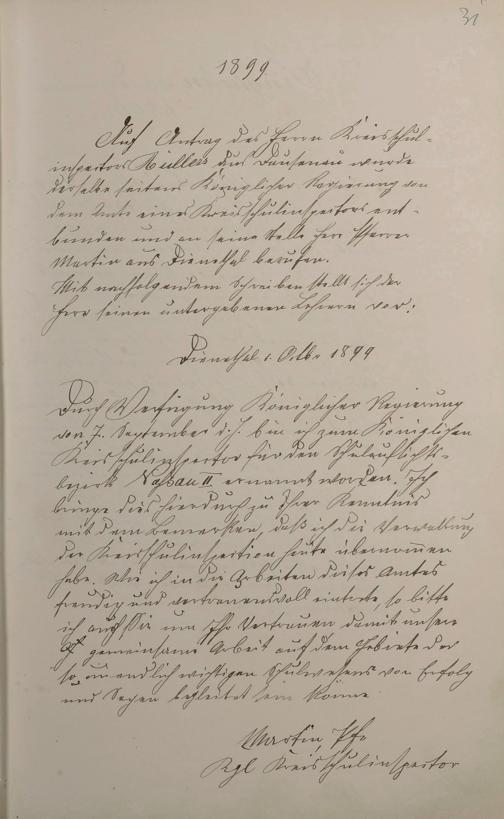 31
1899
Auf Antrag des Herrn Kreisschul-
inspektors Müllers aus Dausenau wurde
derselbe seitens Königlicher Regierung von
dem Amte eines Kreisschulinspektors ent-
bunden und an seine Stelle Herr Pfarrer
Martin aus Dienethal berufen.
Mit nachfolgendem Schreiben stellt sich der
Herr seinen untergebenen Lehrern vor:
Dienethal 1. Oktbr 1899
Durch Verfügung Königlicher Regierung
von 7. September d. J. bin ich zum Königlichen
Kreisschulinspektor für den Schulaufsichts-
bezirk Nassau II ernannt worden. Ich
bringe dies hierdurch zu Ihrer Kenntnis
mit dem Bemerken, daß ich die Verwaltung
der Kreisschulinspektion heute übernommen
habe. Wie ich in die Arbeiten dieses Amtes
freudig und vertrauensvoll eintrete, so bitte
ich auch Sie um Ihr Vertrauen damit unsere
gemeinsame Arbeit auf dem Gebiete des
so unendlich wichtigen Schulwesens von Erfolg
und Segen begleitet sein könne.
Martin, Pfr
Kgl Kreisschulinspektor